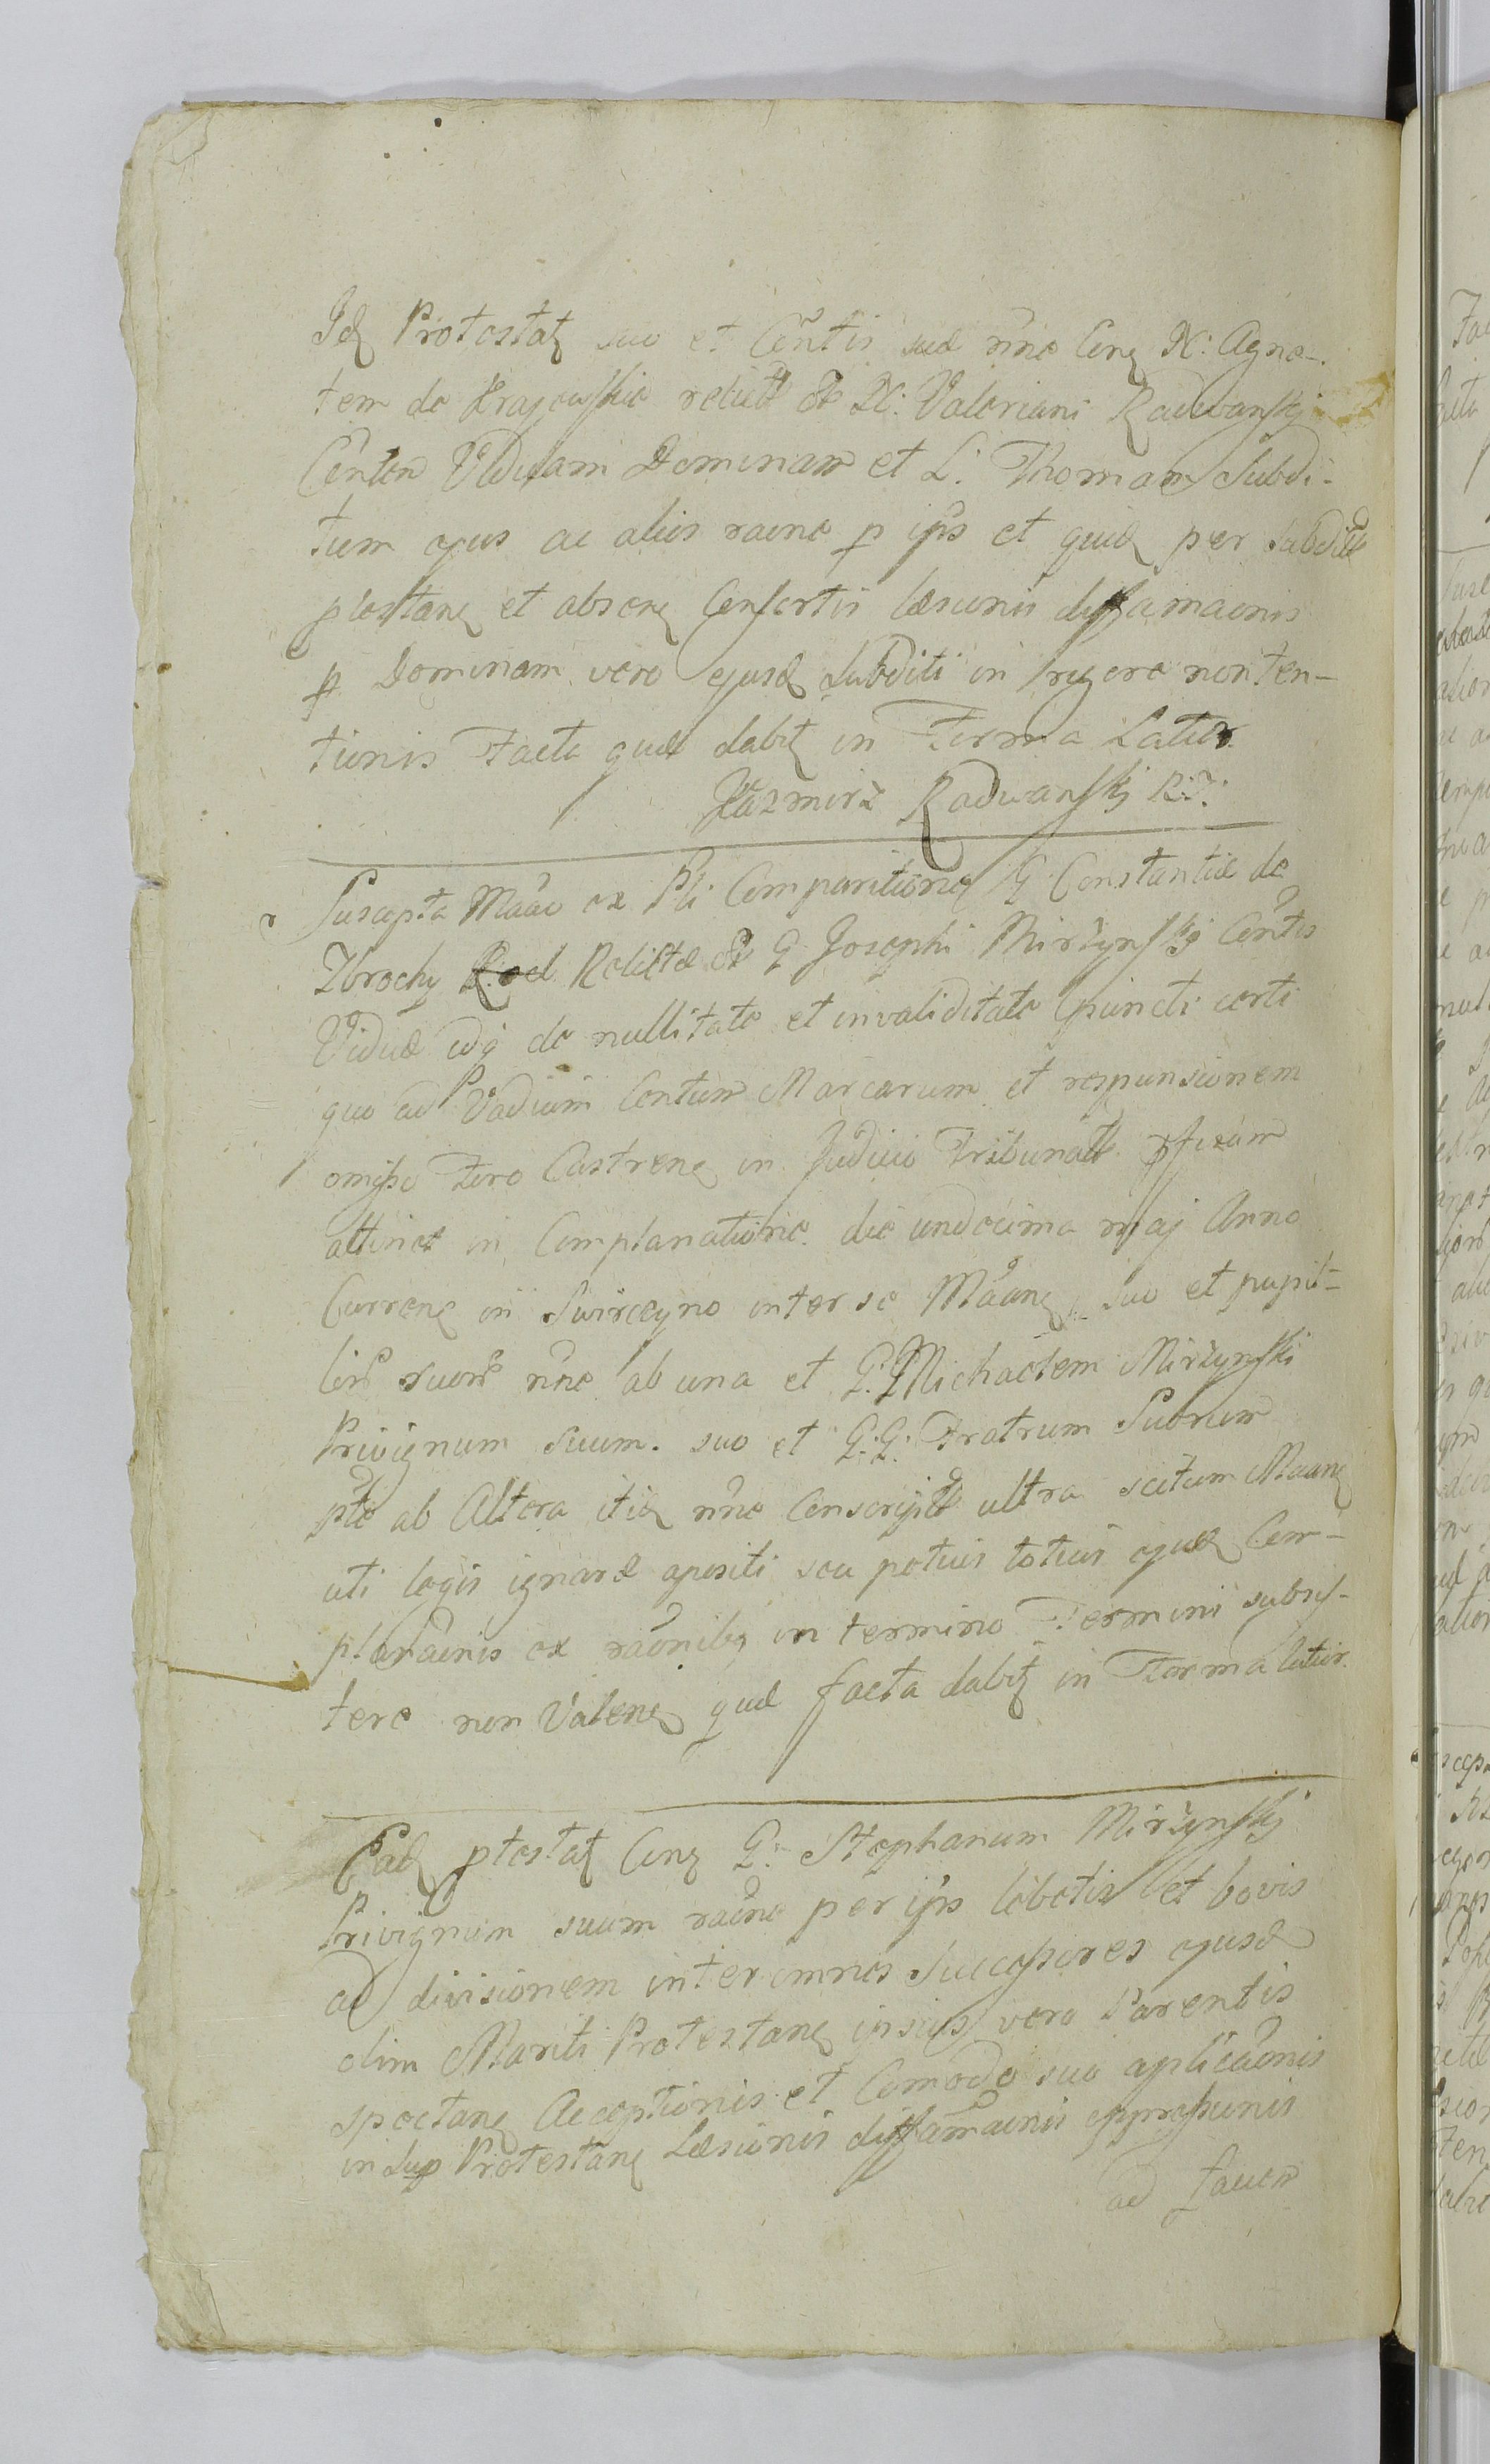 Idq Protestatq suo et Contis suæ nñe Conq N: Agne-
tem de Krajewskie relictã Ol N: Valeriani Radwanskj
Conten Viduam Dominam et L: Thomam Subdi-
tum ejus ac aliis raõne p ip̃s et quidq per Subditũ
ptestanq et absenq Consortis læsionis diffamaõnis
p Dominam vero ejusdq Subditi in rigore non ten-
tionis Facta quæ dabitq in Forma Latior
Kazmirz Radwanskj
Suscepta Mãao ex Pti Comparitione G Constantiæ de
Zbrochy Relictæ Ol G Josephi Mirzynskj Contis
Viduæ adq de nullitate et invaliditate puncti certi
quo ad Vadium Centum Marcarum et responsionem
omisso Foro Castrenq in Judicio Tribunali pfixam
attinet in Complanatione die undecima maj Anno
Currenq in Swirczyno inter se Mãanq suo et pupil-
lor̃ suor̃ nñe ab una et G: Michaelem Mirzynski
Privignum Suum. suo et G:G: Fratrum Suorum
pte ab Altera itiq nñe Conscriptæ ultra scitum Maanq
uti legis ignaræ apositi seu potius totius ejusdq Com-
planaõnis ex raõnibq in termino Termini subsis-
tere non Valenq quæ facta dabitq in Forma latior.
Eadq ptestatq Conq G: Stephanum Mirzynskj
Privignum suum raõne per ip̃s lebetis et bovis
ad divisionem inter omnes Successores ejusdq
olim Mariti Protestanq ipsius vero Parentis
spectanq Acceptionis et Comodo suo aplicaõnis
in sup Protestanq Læsionis diffamaõnis oppressionis
ad